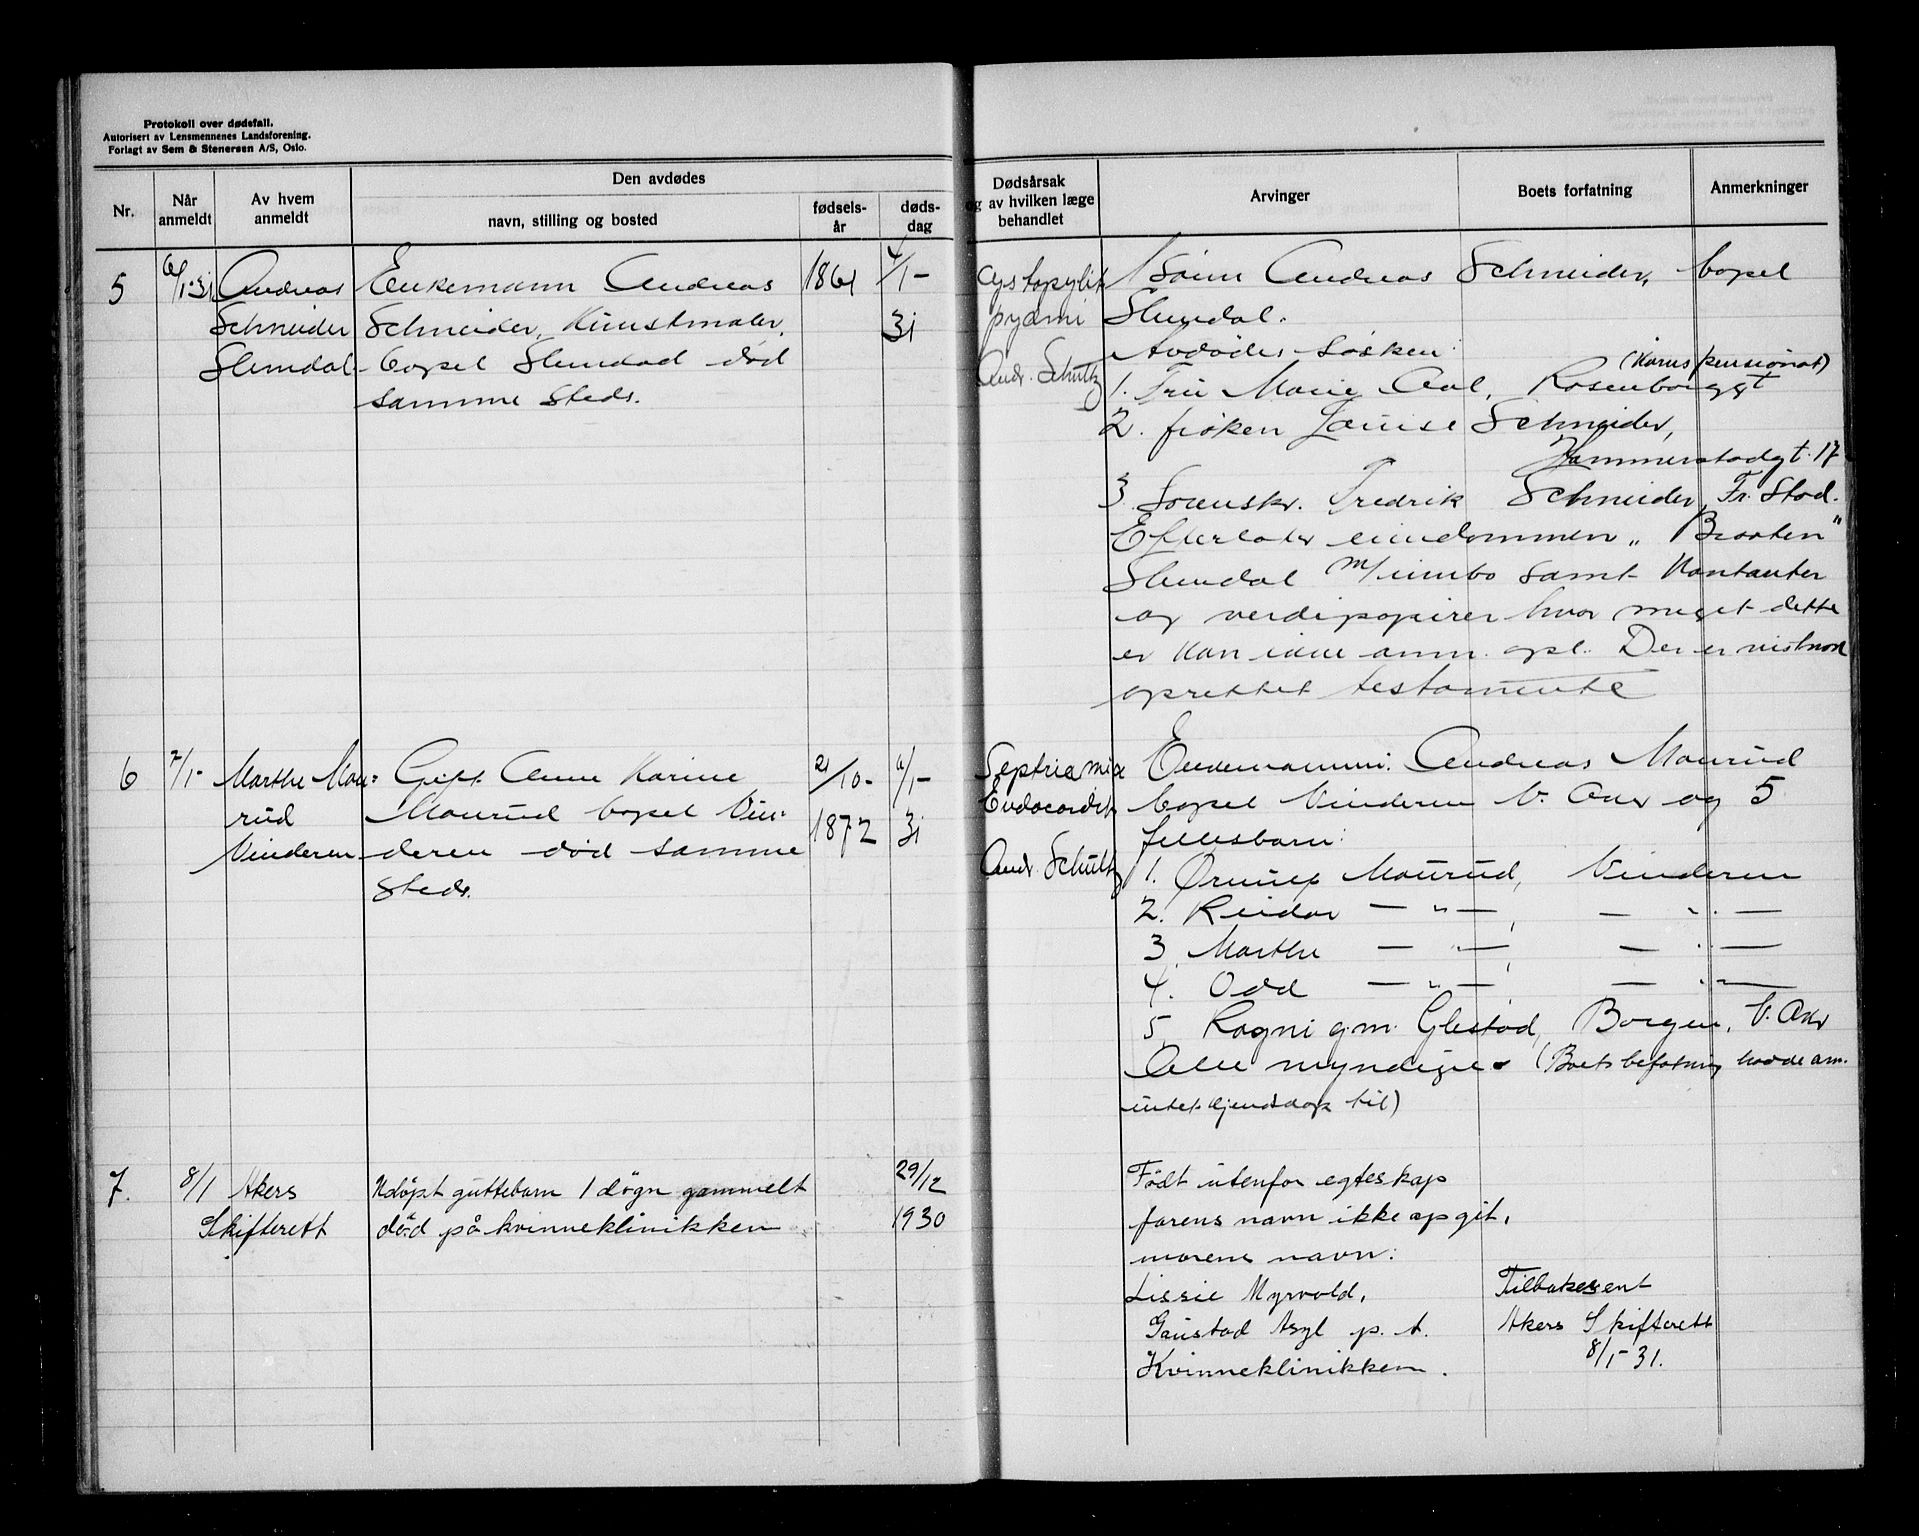 Protokoll over dødsfall.
Autorisert av Lensmennenes Landsforening.
Forlagt av Sem & Stenersen A/S, Oslo.
Nr.
Når anmeldt
Av hvem anmeldt
Den avdødes
navn, stilling og bosted
fødsels-
år
døds-
dag
Dødsårsak
og av hvilken læge
behandlet
Arvinger
Boets forfatning
Anmerkninger
5
6/1-31
Andreas
Schneider
Slemdal
Enkemann Andreas
Schneider, Kunstmaler,
bopel Slemdal død
samme steds.
1861
4/1-
31
Cystopylit
pyämi
Andr. Schultz
Søun Andreas Schneider, bopel
Slemdal.
Avdødes søsken:
(Harms pensionat)
1. Fru Marie Aal, Rosenborggt
2. frøken Louise Schneider,
Hammerstadgt. 17
3. Sorenskr. Fredrik Schneider, Fr.stad.
Efterlater eiendommen „Braaten"
Slemdal m/innbo samt kontanter
og verdipapirer hvor meget dette
er kan ikke anm. opl. Der er vistnok
oprettet testamente
6
7/1-
Marthe Mau=
rud
Vinderen
Gift Anne Karine
Maurud bopel Vin=
deren død samme
steds.
21/10-
1872
6/1-
31
Septicemia
Endocardit
Andr. Schultz
Enkemannn: Andreas Maurud
bopel Vinderen V. Aker og 5
fellesbarn:
1. Ørnulf Maurud, Vinderen
2. Reidar — " —, — " —
3. Marthe — " —, — " —
4. Odd — " —, — " —
5. Ragni g.m. Glestad, Borgen, V. Aker
Alle myndige. (Boets befatning hadde anm.
intet kjendskap til)
7.
8/1
Akers
Skifterett
Udøpt guttebarn 1 døgn gammelt
død på kvinneklinikken
29/12
1930
Født utenfor egteskap
farens navn ikke opgit,
morens navn:
Lissie Myrvold,
Gaustad Asyl p. t.
Kvinneklinikken.
Tilbakesent
Akers Skifterett
8/1-31.